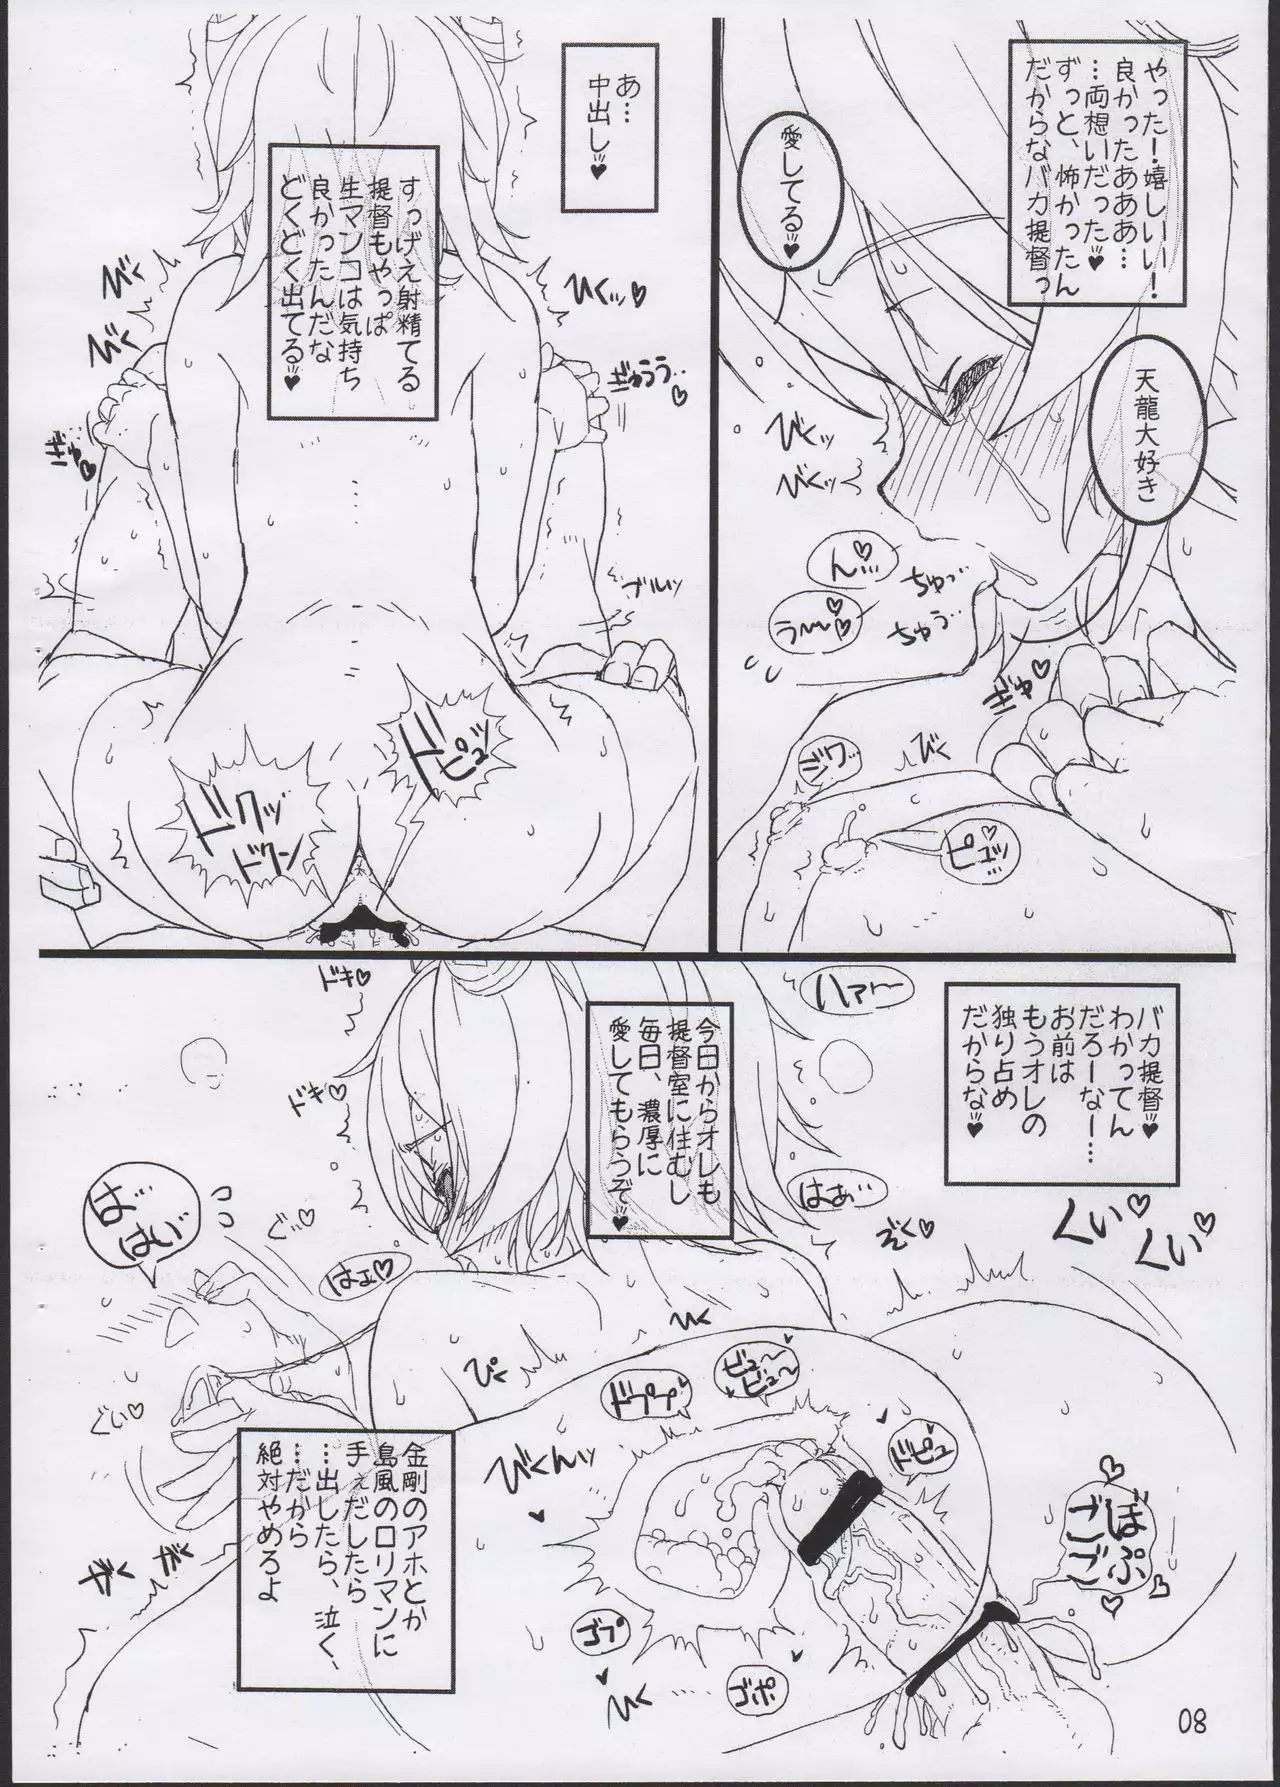 やった！嬉しいい！
良かったあああ…
…両想いだった♥
ずっと、怖かったん
だからなバカ提督っ
愛してる♥
天龍大好き
びくッ
びくッ
ん…
ちゅっ
う〜〜
ちゅう
ぎゅ♡
びく
ジワ…
ピュッ
あ…
中出し♥
すっげえ射精てる
提督もやっぱ
生マンコは気持ち
良かったんだな
どくどく出てる♥
びく
びく
ビクッ♡
ぎゅうう…
ぎゅっ
ブルッ
ドピュッ
ドクッ
ドクン
バカ提督♥
わかってん
だろーなー…
お前は
もうオレの
独り占め
だからな♥
ハァ〜
今日からオレも
提督室に住むし
毎日、濃厚に
愛してもらうぞ♥
ドキ♡
ドキ♡
はぁ…
ぞく♡
くい♡
くい♡
ばっ
はいっ
ぐぃ♡
はぁ♡
ぐい♡
びく
ぴく
ドププ
ビュ〜
ビュ〜
ドピュ
びくんッ
ゴプ
ゴポ
びく
ごぼ
ごぷ
ギ
ギ
08